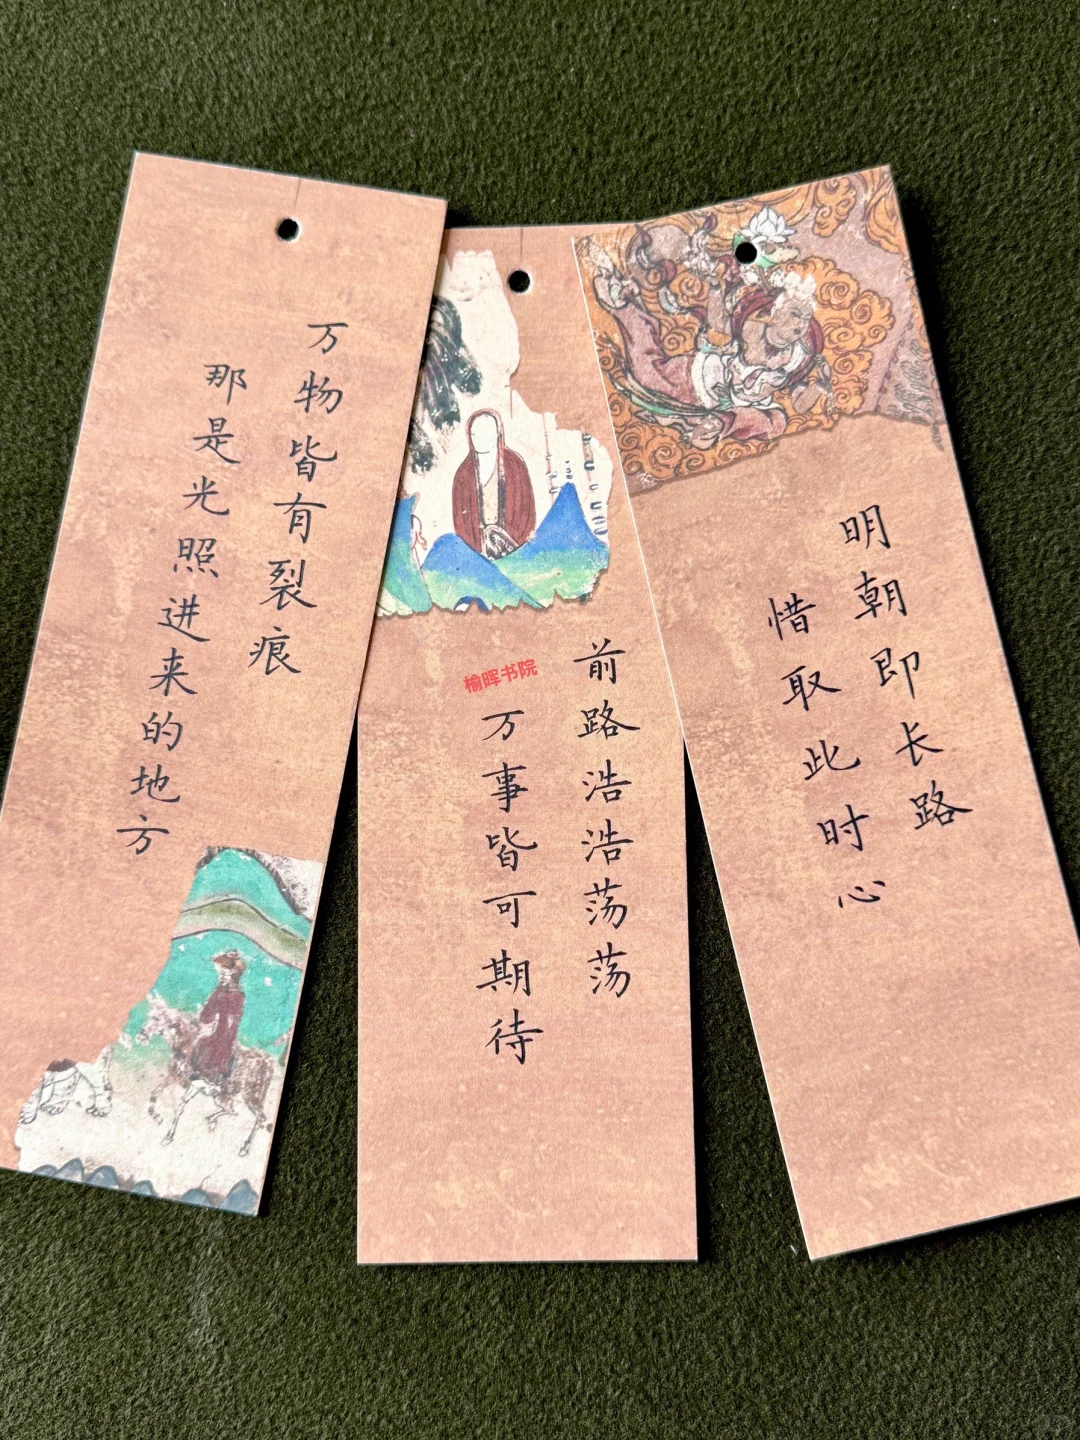 万物皆有裂痕
那是光照进来的地方
前路浩浩荡荡
万事皆可期待
榆晖书院
明朝即长路
惜取此时心